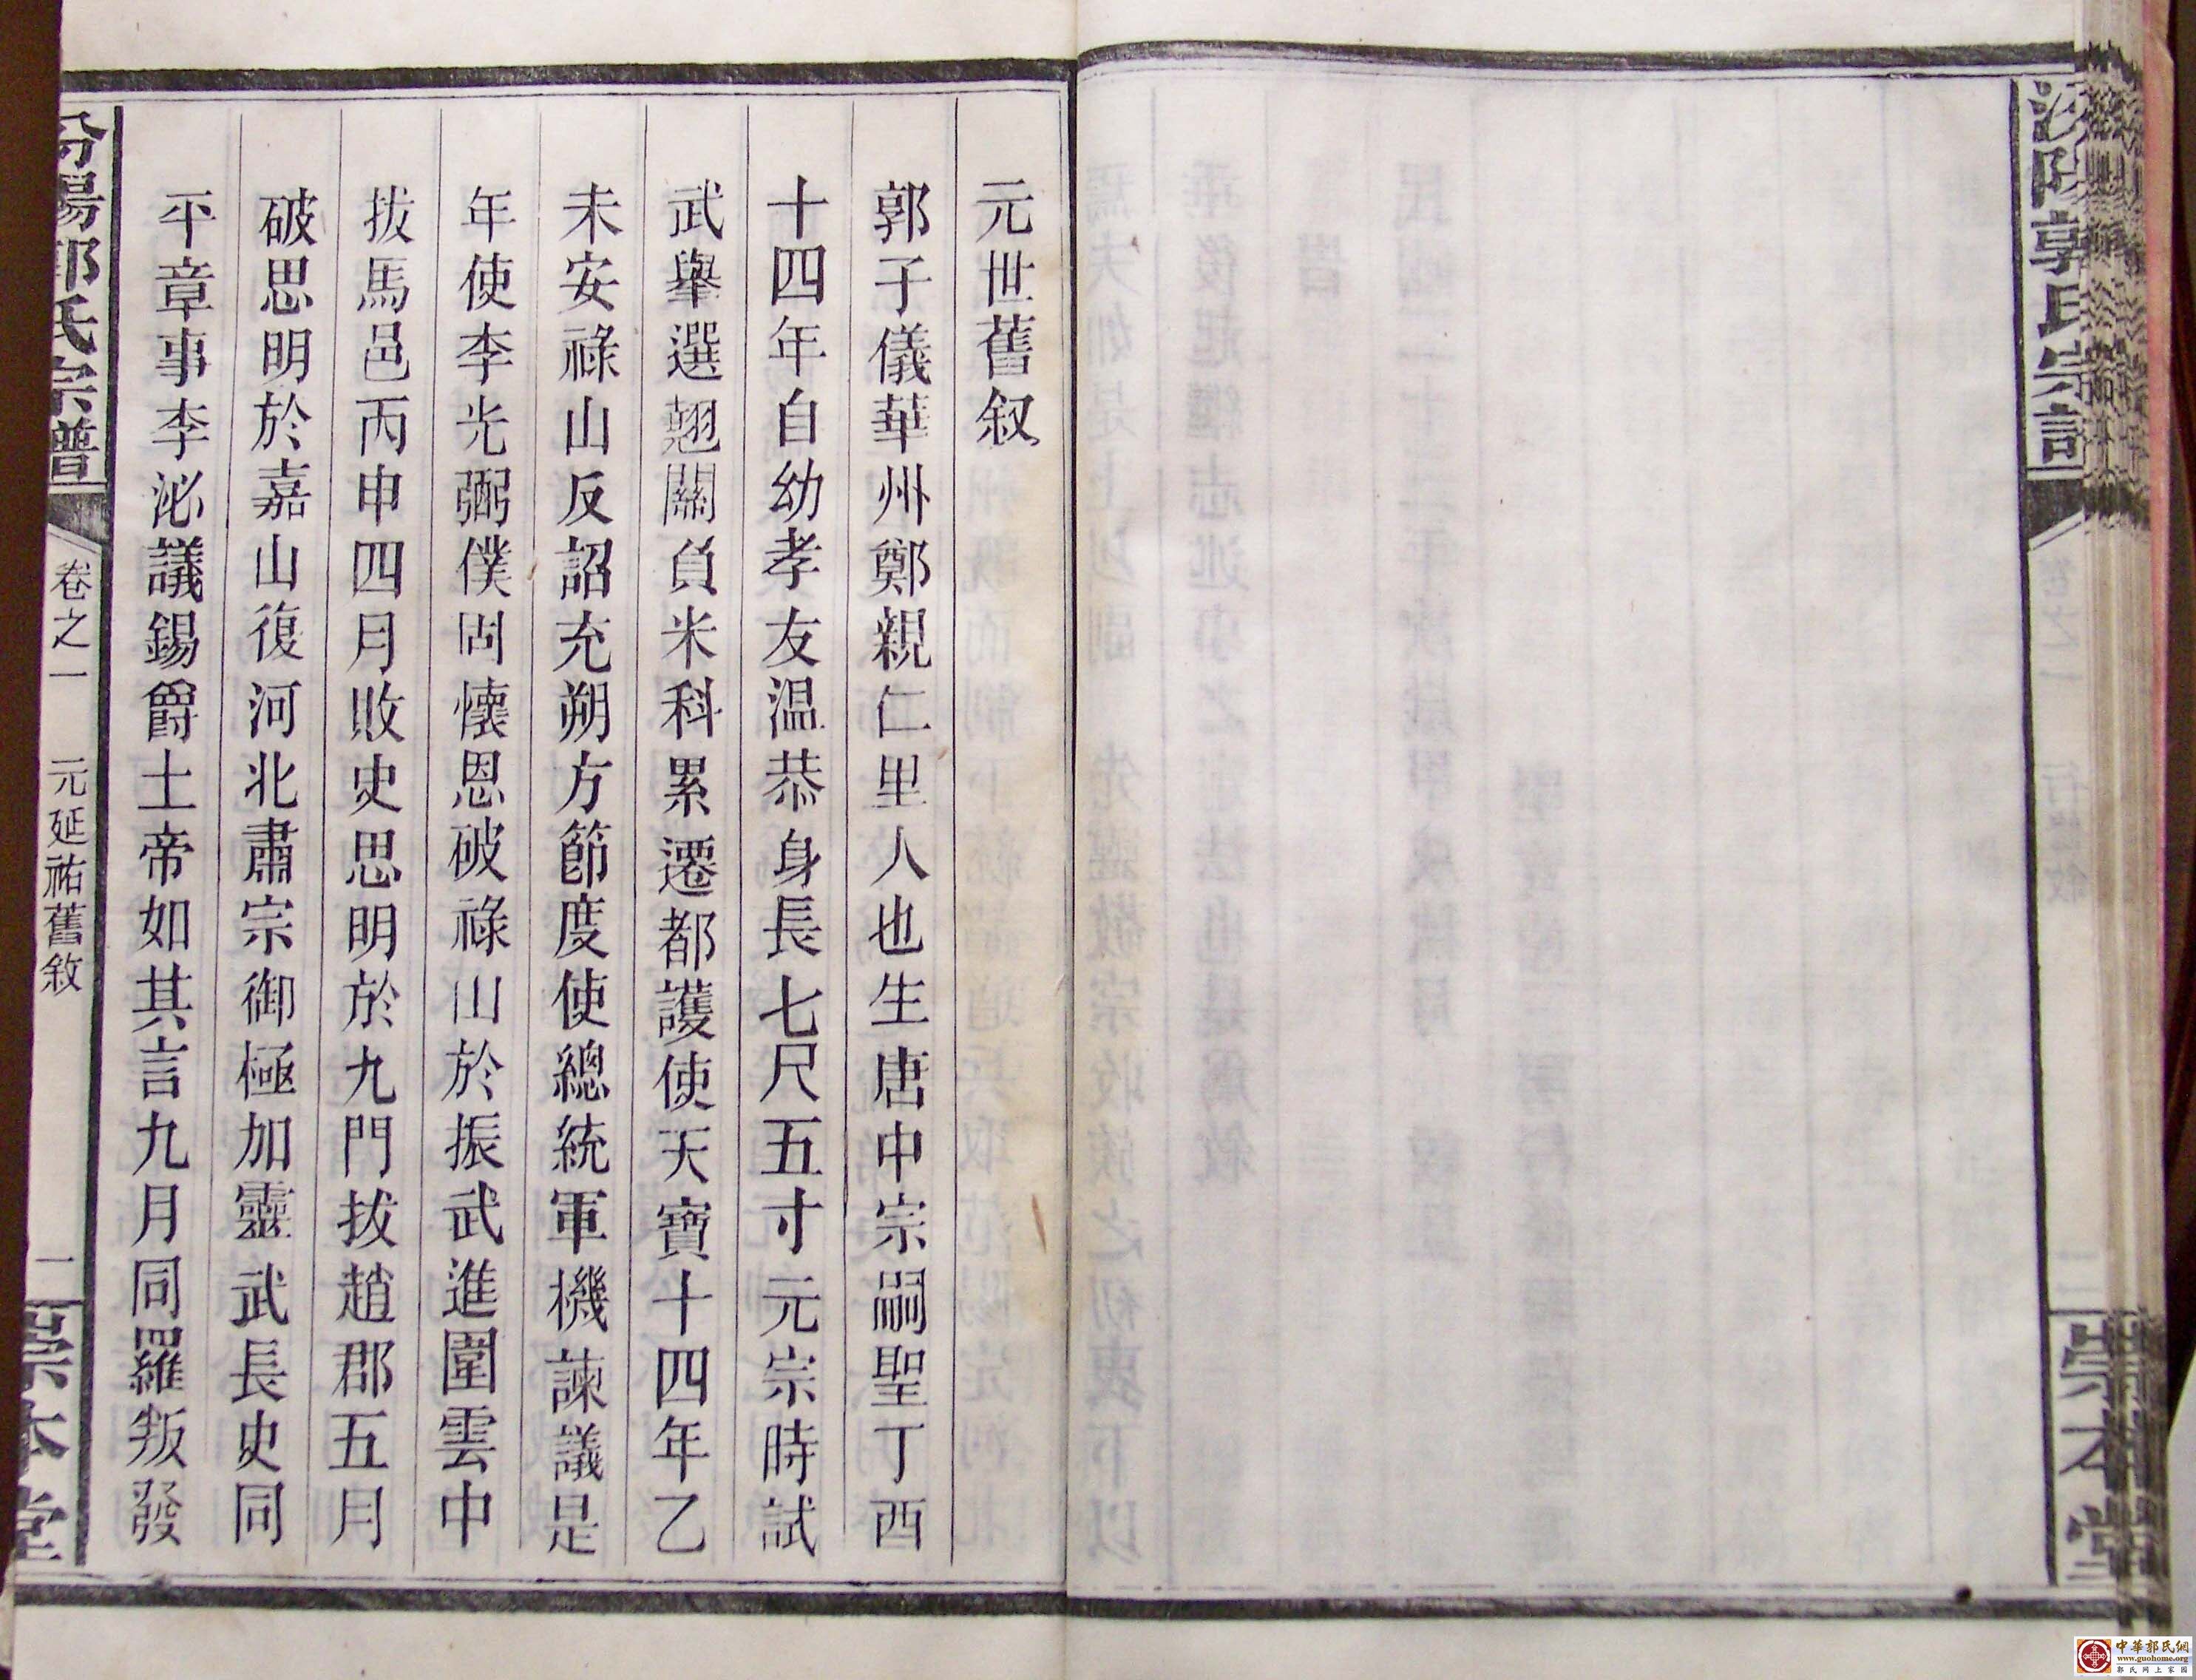 汾陽郭氏宗譜
崇本堂
元世舊叙
郭子儀華州鄭親仁里人也生唐中宗嗣聖丁酉
十四年自幼孝友温恭身長七尺五寸元宗時試
武舉選翹關負米科累遷都護使天寶十四年乙
未安祿山反詔充朔方節度使總統軍機諫議是
年使李光弼僕固懷恩破祿山於振武進圍雲中
拔馬邑丙申四月敗史思明於九門拔趙郡五月
破思明於嘉山復河北肅宗御極加靈武長史同
平章事李泌議錫爵土帝如其言九月同羅叛發
汾陽郭氏宗譜
卷之一 元延祐舊敘
一
崇本堂
中華郭氏網
www.guohome.org
郭氏网上家园